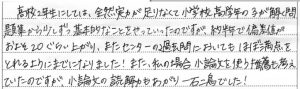 高校2年生にしては、全然実力が足りなくて小学校高学年の子が解く問
題集から少しずつ基本的なことをやっていったのですが、約半年で偏差値が
およそ20ぐらい上がり、またセンターの過去問においてもほぼ満点を
とれるようにまでになりました!また、私の場合小論文を使う推薦も考え
ていたのですが、小論文の読解力もあがり一石二鳥でした!